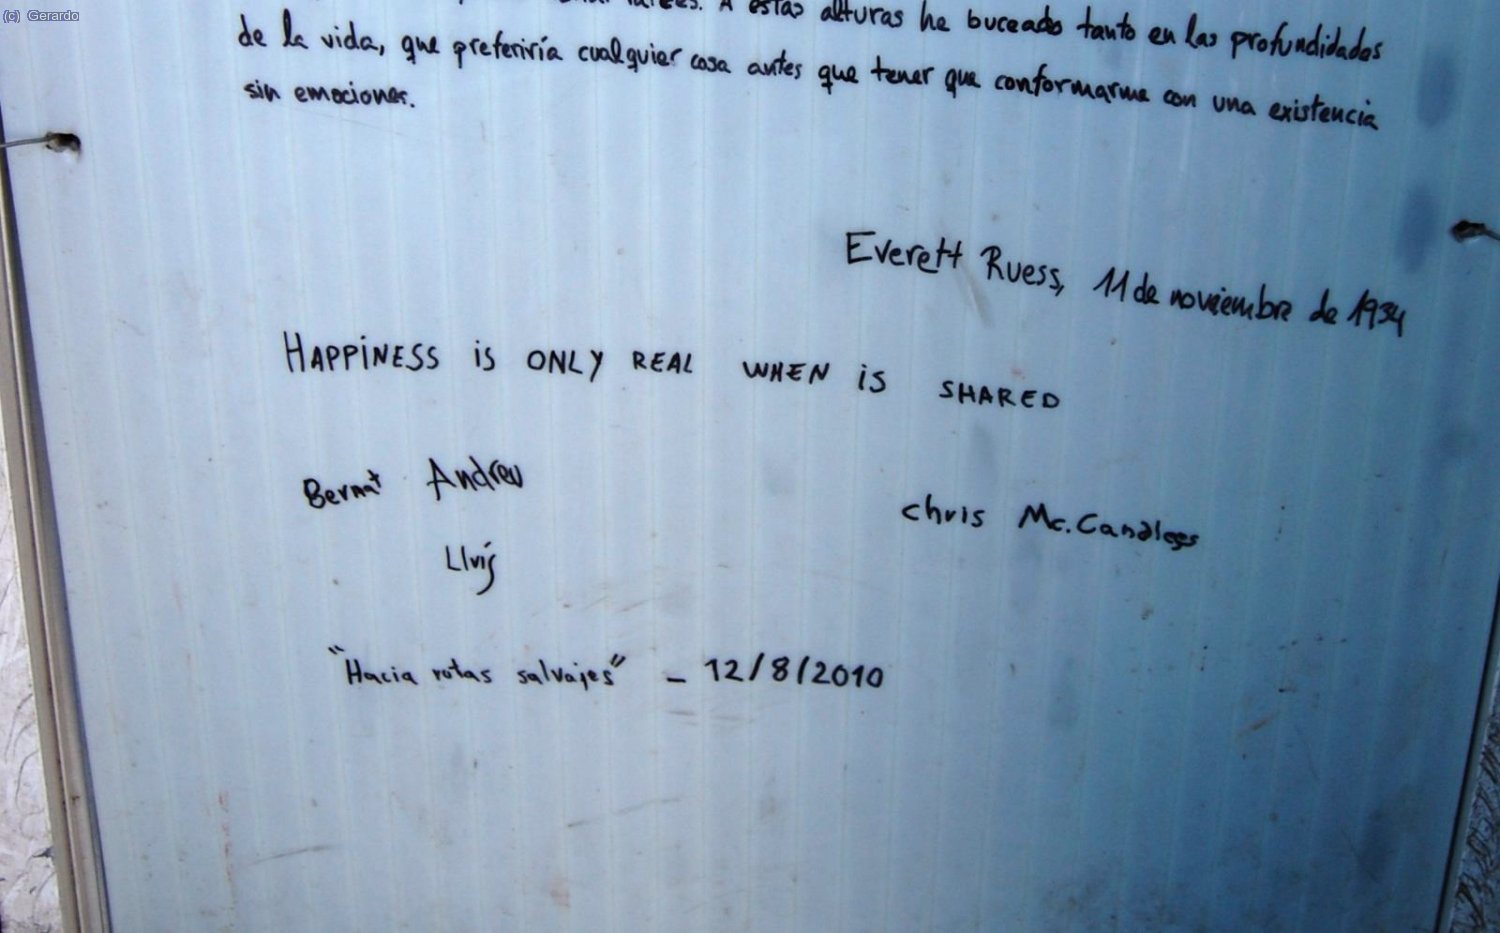 (c) Gerardo
raíces. A estas alturas he buceado tanto en las profundidades
de la vida, que preferiría cualquier cosa antes que tener que conformarme con una existencia
sin emociones.
Everett Ruess, 11 de noviembre de 1934
HAPPINESS iS ONLY REAL WHEN iS SHARED
Bernat Andreu
Lluís
chris Mc.Candless
"Hacia rutas salvajes" - 12/8/2010